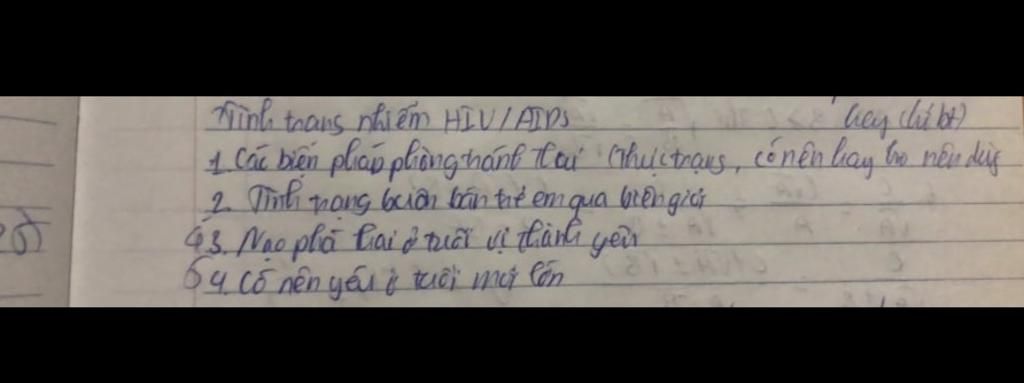 Tình trang nhiễm HIV/AIDS hay chỉ bt)
1. Các biện pháp phòng tránh thai (thực trạng, có nên hay ko nên dùng
2. Tình trạng buôn bán trẻ em qua biên giới
4 3. Nạo phá thai ở tuổi vị thành yên
5 4. Có nên yêu ở tuổi mới lớn